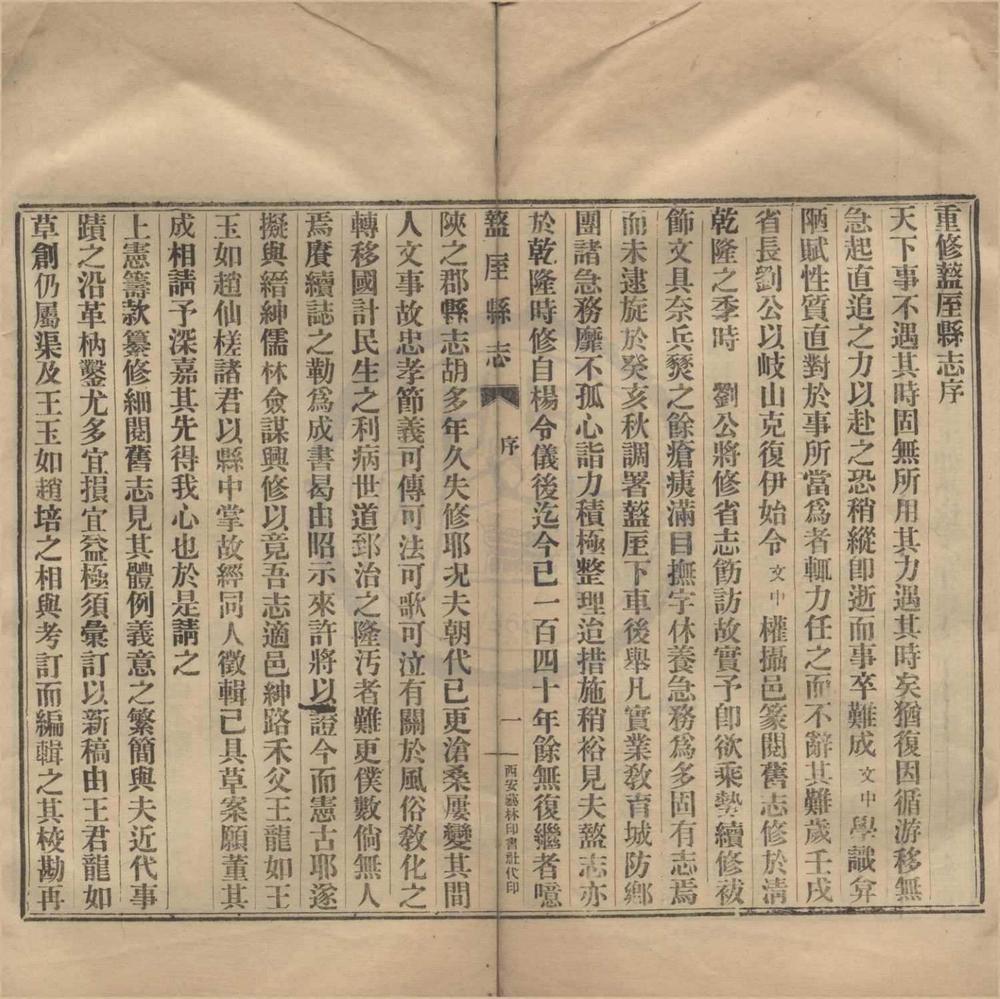 重修盩厔縣志序
天下事不遇其時固無所用其力遇其時矣猶復因循游移無
急起直追之力以赴之恐稍縱卽逝而事卒難成文中學識弇
陋賦性質直對於事所當爲者輒力任之而不辭其難歲壬戌
省長劉公以岐山克復伊始令文中權攝邑篆閱舊志修於清
乾隆之季時 劉公將修省志飭訪故實予卽欲乘勢續修祓
節文具奈兵燹之餘瘡痍滿目撫字休養急務爲多固有志焉
而未逮旋於癸亥秋調署盩厔下車後舉凡實業敎育城防鄉
團諸急務靡不孤心詣力積極整理迨措施稍裕見夫盩志亦
於乾隆時修自楊令儀後迄今已一百四十年餘無復繼者噫
盩厔縣志 序 一 西安藝林印書社代印
陝之郡縣志胡多年久失修耶況夫朝代已更滄桑屢變其間
人文事故忠孝節義可傳可法可歌可泣有關於風俗敎化之
轉移國計民生之利病世道郅治之隆汚者難更僕數倘無人
焉賡續誌之勒爲成書曷由昭示來許將以證今而憲古耶遂
擬與縉紳儒林僉謀興修以竟吾志適邑紳路禾父王龍如王
玉如趙仙槎諸君以縣中掌故經同人徵輯已具草案願董其
成相請予深嘉其先得我心也於是請之
上憲籌款纂修細閱舊志見其體例義意之繁簡與夫近代事
蹟之沿革枘鑿尤多宜損宜益極須彙訂以新稿由王君龍如
草創仍屬渠及王玉如趙培之相與考訂而編輯之其校勘再